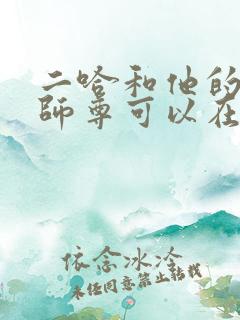 二哈和他的
師尊可以在
依念冰冷
未经同意禁止转载